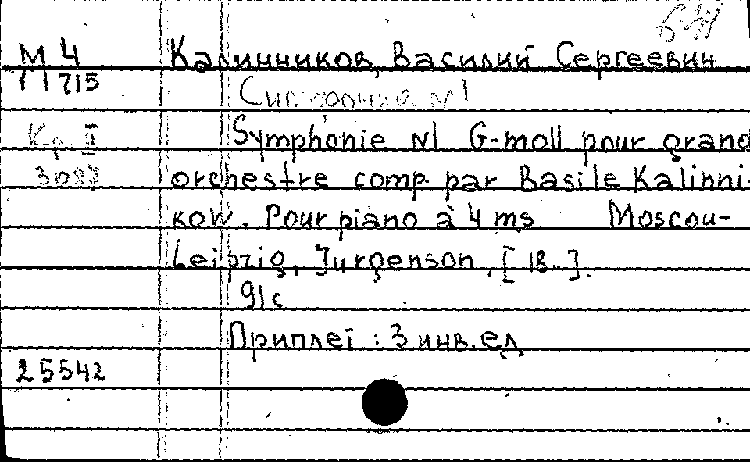 М 4 Калинников, Василий Сергеевич
11715
Симфония №1
Кр. II Symphonie N1 G-moll pour grand
orchestre comp. par Basile Kalinni-
kow. Pour piano à 4 ms Moscou-
Leipzig, Jurgenson, [18..].
91 c
Приплет: 3 инв.ед.
25542